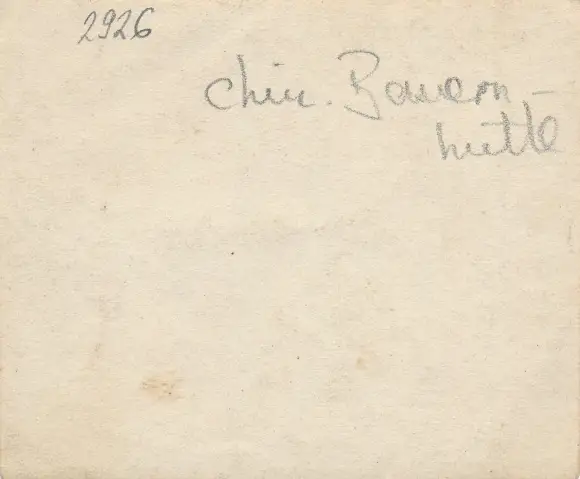 2926
chin. Bauern-
hütte